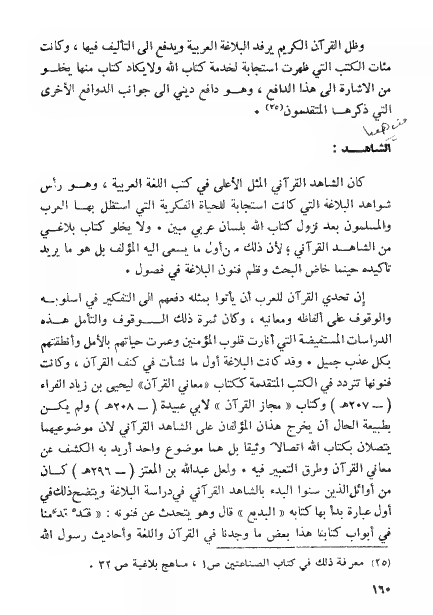 وظل القرآن الكريم يرفد البلاغة العربية ويدفع الى التأليف فيها ، وكانت
مئات الكتب التي ظهرت استجابة لخدمة كتاب الله ولايكاد كتاب منها يخلو
من الاشارة الى هذا الدافع ، وهو دافع ديني الى جوانب الدوافع الأخرى
التي ذكرها المتقدمون(٢٥) ٠
الشاهد :
كان الشاهد القرآني المثل الأعلى في كتب اللغة العربية ، وهو رأس
شواهد البلاغة التي كانت استجابة للحياة الفكرية التي استظل بها العرب
والمسلمون بعد نزول كتاب الله بلسان عربي مبين ٠ ولا يخلو كتاب بلاغي
من الشاهد القرآني ؛ لأن ذلك من أول ما يسعى اليه المؤلف بل هو ما يريد
تأكيده حينما خاض البحث ونظم فنون البلاغة في فصول ٠
إن تحدي القرآن للعرب أن يأتوا بمثله دفعهم الى التفكير في اسلوبه
والوقوف على ألفاظه ومعانيه ، وكان ثمرة ذلك الوقوف والتأمل هذه
الدراسات المستفيضة التي أنارت قلوب المؤمنين وعمرت حياتهم بالأمل وأنطقتهم
بكل عذب جميل ٠ وقد كانت البلاغة أول ما نشأت في كنف القرآن ، وكانت
فنونها تتردد في الكتب المتقدمة ككتاب «معاني القرآن» ليحيى بن زياد الفراء
( ــ ٢٠٧هـ ) وكتاب « مجاز القرآن » لابي عبيدة ( ــ ٢٠٨هـ ) ولم يكن
بطبيعة الحال أن يخرج هذان المؤلفان على الشاهد القرآني لان موضوعيهما
يتصلان بكتاب الله اتصالاً وثيقا بل هما موضوع واحد أريد به الكشف عن
معاني القرآن وطرق التعبير فيه ٠ ولعل عبدالله بن المعتز ( ــ ٢٩٦هـ ) كان
من أوائل الذين سنوا البدء بالشاهد القرآني في دراسة البلاغة ويتضح ذلك في
أول عبارة بدأ بها كتابه « البديع » قال وهو يتحدث عن فنونه : « قد قدمنا
في أبواب كتابنا هذا بعض ما وجدنا في القرآن واللغة وأحاديث رسول الله
(٢٥) معرفة ذلك في كتاب الصناعتين ص١ ، مناهج بلاغية ص ٣٢ ٠
١٦٠